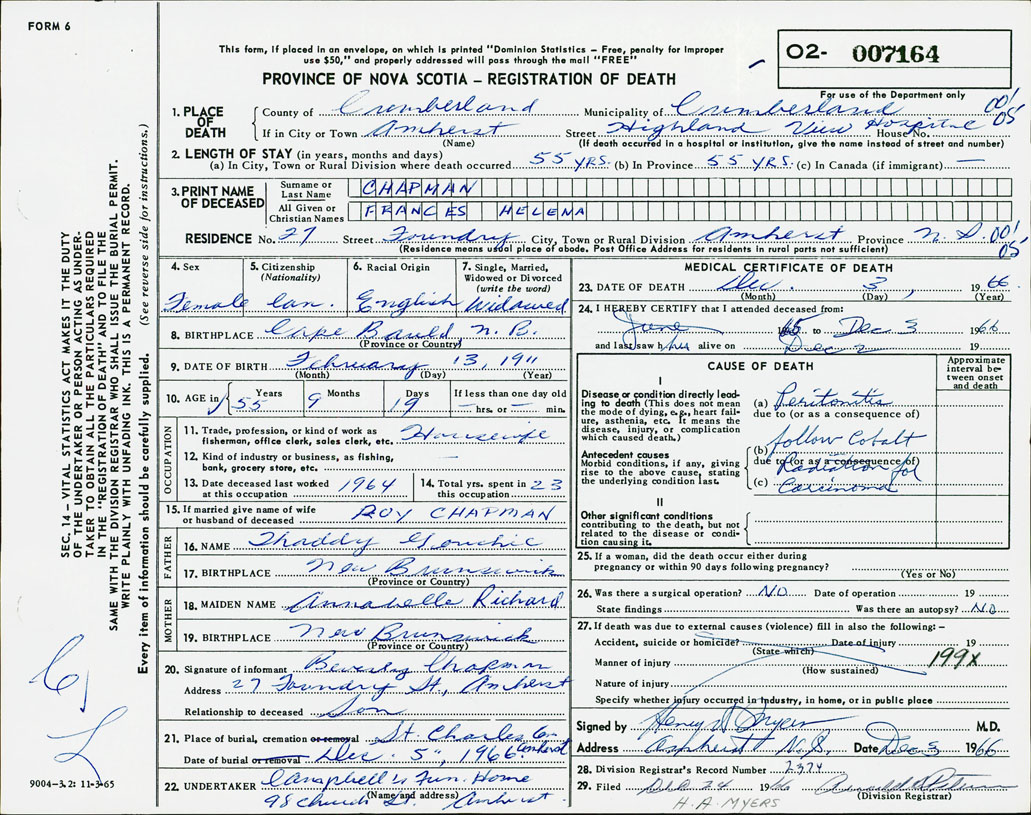 FORM 6
This form, if placed in an envelope, on which is printed "Dominion Statistics – Free, penalty for improper
use $50," and properly addressed will pass through the mail "FREE"
O2- 007164
PROVINCE OF NOVA SCOTIA – REGISTRATION OF DEATH
For use of the Department only
1. PLACE OF DEATH
County of Cumberland Municipality of Cumberland 001
If in City or Town Amherst Street Highland View Hospital House No. 05
(Name) (If death occurred in a hospital or institution, give the name instead of street and number)
2. LENGTH OF STAY (in years, months and days)
(a) In City, Town or Rural Division where death occurred 55 YRS. (b) In Province 55 YRS. (c) In Canada (if immigrant) —
3. PRINT NAME OF DECEASED
Surname or Last Name CHAPMAN
All Given or Christian Names FRANCES HELENA
RESIDENCE No. 27 Street Foundry City, Town or Rural Division Amherst Province N.S. 001
(Residence means usual place of abode. Post Office Address for residents in rural parts not sufficient) 05
4. Sex Female
5. Citizenship (Nationality) Can.
6. Racial Origin English
7. Single, Married, Widowed or Divorced (write the word) Widowed
8. BIRTHPLACE Cape Bauld N.B.
(Province or Country)
9. DATE OF BIRTH February 13, 1911
(Month) (Day) (Year)
10. AGE in 55 Years 9 Months 19 Days If less than one day old — hrs. or — min.
OCCUPATION
11. Trade, profession, or kind of work as fisherman, office clerk, sales clerk, etc. Housewife
12. Kind of industry or business, as fishing, bank, grocery store, etc. —
13. Date deceased last worked at this occupation 1964
14. Total yrs. spent in this occupation 23
15. If married give name of wife or husband of deceased ROY CHAPMAN
FATHER
16. NAME Thaddy
17. BIRTHPLACE New Brunswick
(Province or Country)
MOTHER
18. MAIDEN NAME Annabelle Richard
19. BIRTHPLACE New Brunswick
(Province or Country)
20. Signature of informant Beverley Chapman
Address 27 Foundry St., Amherst
Relationship to deceased Son
21. Place of burial, cremation or removal St. Charles Cem Amherst
Date of burial or removal Dec. 5", 1966
22. UNDERTAKER Campbell's Fun. Home
(Name and address)
98 Church St. Amherst
MEDICAL CERTIFICATE OF DEATH
23. DATE OF DEATH Dec. 3, 1966
(Month) (Day) (Year)
24. I HEREBY CERTIFY that I attended deceased from:
June 1965 to Dec 3 1966
and last saw her alive on Dec 2 19
CAUSE OF DEATH
Approximate interval between onset and death
I
Disease or condition directly leading to death (This does not mean the mode of dying, e.g., heart failure, asthenia, etc. It means the disease, injury, or complication which caused death.)
(a) Peritonitis
due to (or as a consequence of)
Antecedent causes
Morbid conditions, if any, giving rise to the above cause, stating the underlying condition last.
(b) follow Cobalt
due to (or as a consequence of)
Radiation for
(c) Carcinoma
II
Other significant conditions
contributing to the death, but not related to the disease or condition causing it.
25. If a woman, did the death occur either during pregnancy or within 90 days following pregnancy?
(Yes or No)
26. Was there a surgical operation? No Date of operation 19
State findings Was there an autopsy? No
27. If death was due to external causes (violence) fill in also the following: –
Accident, suicide or homicide? Date of injury 19
(State which)
Manner of injury 199X
(How sustained)
Nature of injury
Specify whether injury occurred in industry, in home, or in public place
Signed by Henry Myers M.D.
Address Amherst N.S. Date Dec 3 1966
28. Division Registrar's Record Number 2374
29. Filed Dec 24 1966
(Division Registrar)
H. A. MYERS
SEC. 14 – VITAL STATISTICS ACT MAKES IT THE DUTY
OF THE UNDERTAKER OR PERSON ACTING AS UNDER-
TAKER TO OBTAIN ALL THE PARTICULARS REQUIRED
IN THE "REGISTRATION OF DEATH" AND TO FILE THE
SAME WITH THE DIVISION REGISTRAR WHO SHALL ISSUE THE BURIAL PERMIT.
WRITE PLAINLY WITH UNFADING INK. THIS IS A PERMANENT RECORD.
Every item of information should be carefully supplied. (See reverse side for instructions.)
9004–3.2: 11-3-65